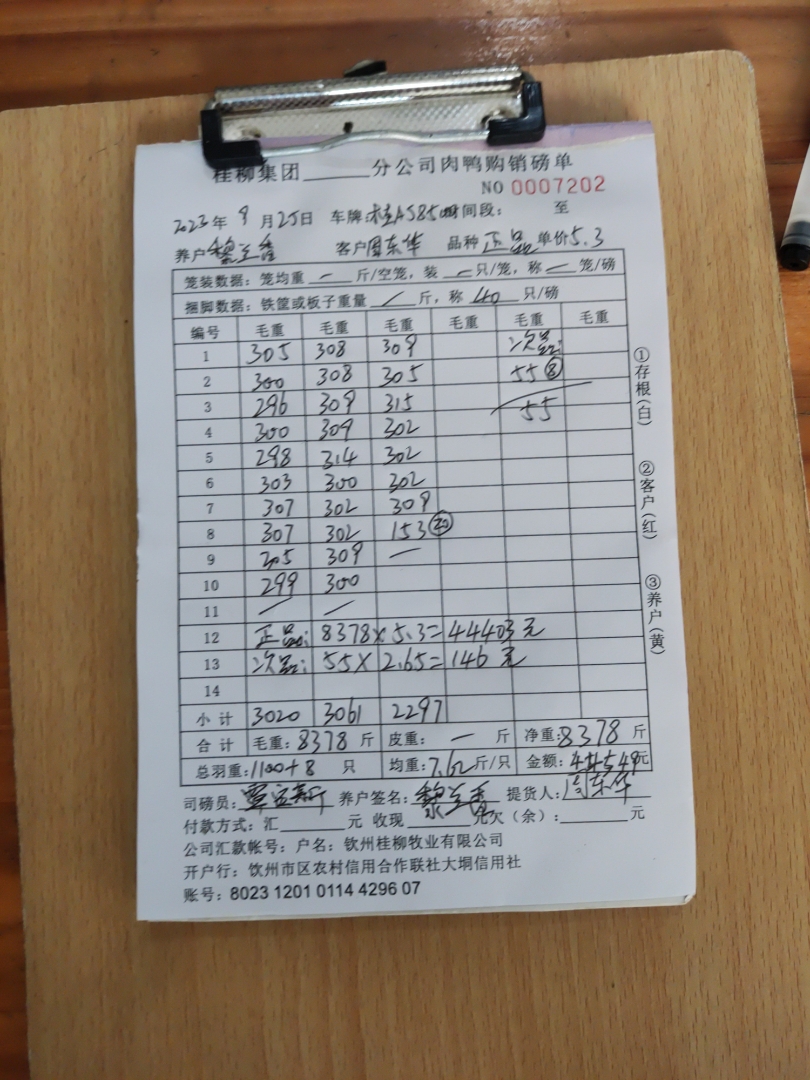 桂柳集团______分公司肉鸭购销磅单
NO 0007202
2023年 9月25日 车牌: 时间段: 至
养户 客户周东华 品种 正品 单价5.3
笼装数据: 笼均重 — 斤/空笼, 装 — 只/笼, 称 — 笼/磅
捆脚数据: 铁筐或板子重量 / 斤, 称 40 只/磅
编号 毛重 毛重 毛重 毛重 毛重 毛重
1 305 308 309 次品:
2 300 308 305 55 ⑧
3 296 309 315 55
4 300 309 302
5 298 314 302
6 303 300 302
7 307 302 309
8 307 302 153 ⑳
9 305 309 —
10 299 300
11 / /
12 正品: 8378×5.3=44403元
13 次品: 55×2.65=146元
14
小计 3020 3061 2297
合计 毛重: 8378 斤 皮重: — 斤 净重: 8378 斤
总羽重: 1100+8 只 均重: 7.62斤/只 金额: 44549元
司磅员: 养户签名: 提货人: 周东华
付款方式: 汇______元 收现______元欠(余): ______元
公司汇款帐号: 户名: 钦州桂柳牧业有限公司
开户行: 钦州市区农村信用合作联社大垌信用社
账号: 8023 1201 0114 4296 07
①存根(白)
②客户(红)
③养户(黄)